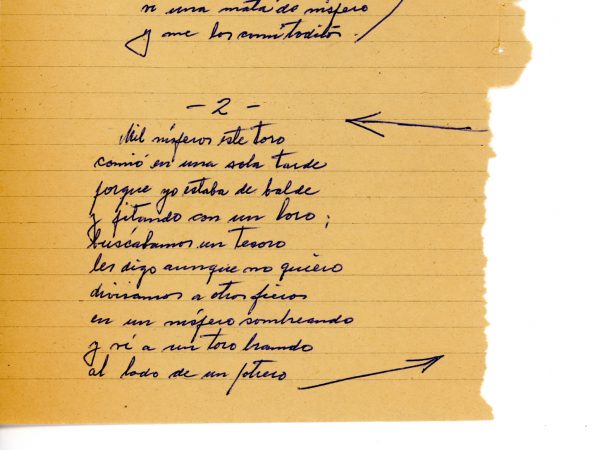 vi una mata de nísfero
y me los comí toditos.
- 2 -
Mil nísferos este toro
comió en una sola tarde
porque yo estaba de balde
y pitando con un loro;
buscábamos un tesoro
les digo aunque no quiero
divisamos a otros fieros
en un nísfero sombreando
y vi a un toro
al lado de un potrero